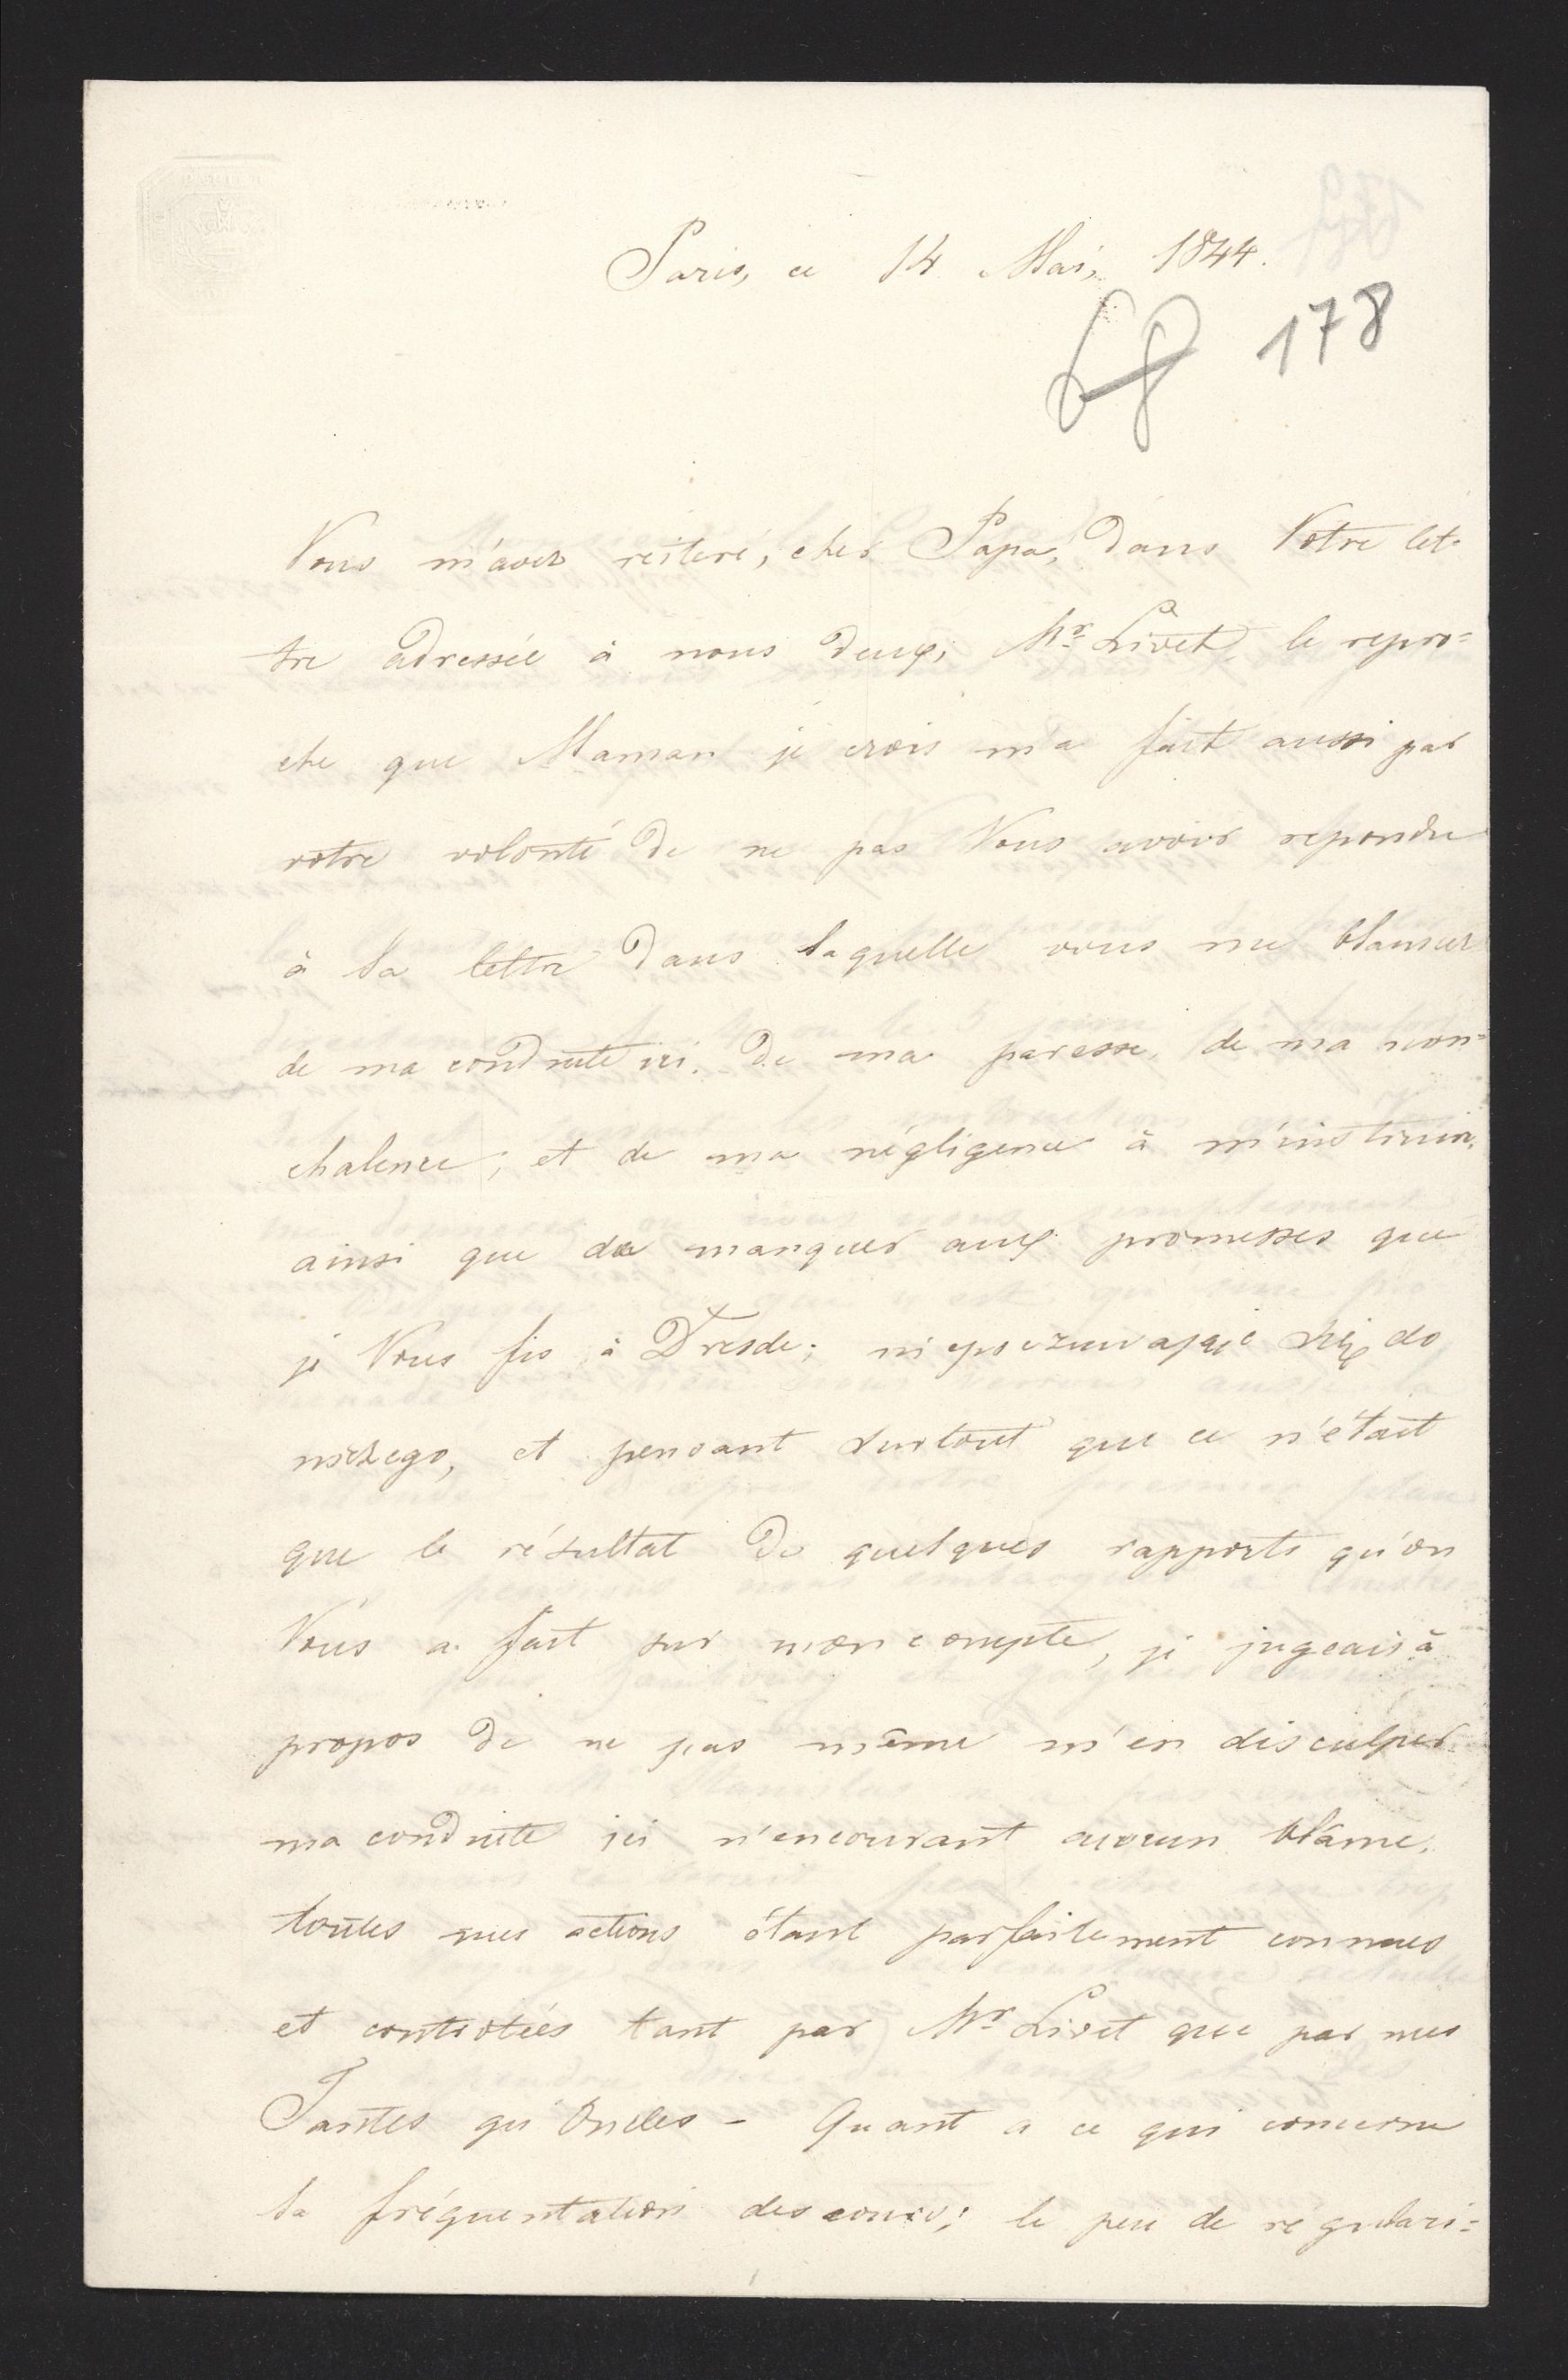 Paris, ce 14 Mai, 1844.
68 178
Vous m'avez reiteré, cher Papa, dans Votre let-
tre adressée à nous deux, Mr. Livet, le repro=
che que Maman je crois m'a fait aussi par
votre volonté de ne pas Vous avoir repondu
à la lettre dans laquelle vous me blamiez
de ma conduite ici. De ma paresse, de ma non=
chalence; et de ma négligence à m'instruire,
ainsi que de manquer aux promesses que
je Vous fis à Dresde; nie poczuwając się do
niczego, et pensant surtout que ce n'était
que le résultat de quelques rapports qu'on
Vous a fait sur mon compte, je jugeais à
propos de ne pas même m'en disculper
ma conduite ici n'encourant aucun blâme,
toutes mes actions étant parfaitement connues
et controtées tant par Mr. Livet que par mes
Tantes qu'Oncles - Quant a ce qui concerne
la fréquentation des cours; le peu de régulari=